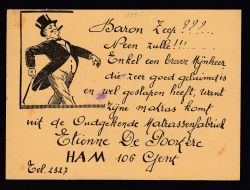 Baron Zeep ???...
Neen zulle!!!...
Enkel een brave Mijnheer
die zeer goed geluimd is
en wel geslapen heeft, want
zijne matras komt
uit de Oudgekende Matrassenfabriek
Etienne De Poorere
HAM 106 Gent
Tel. 2327